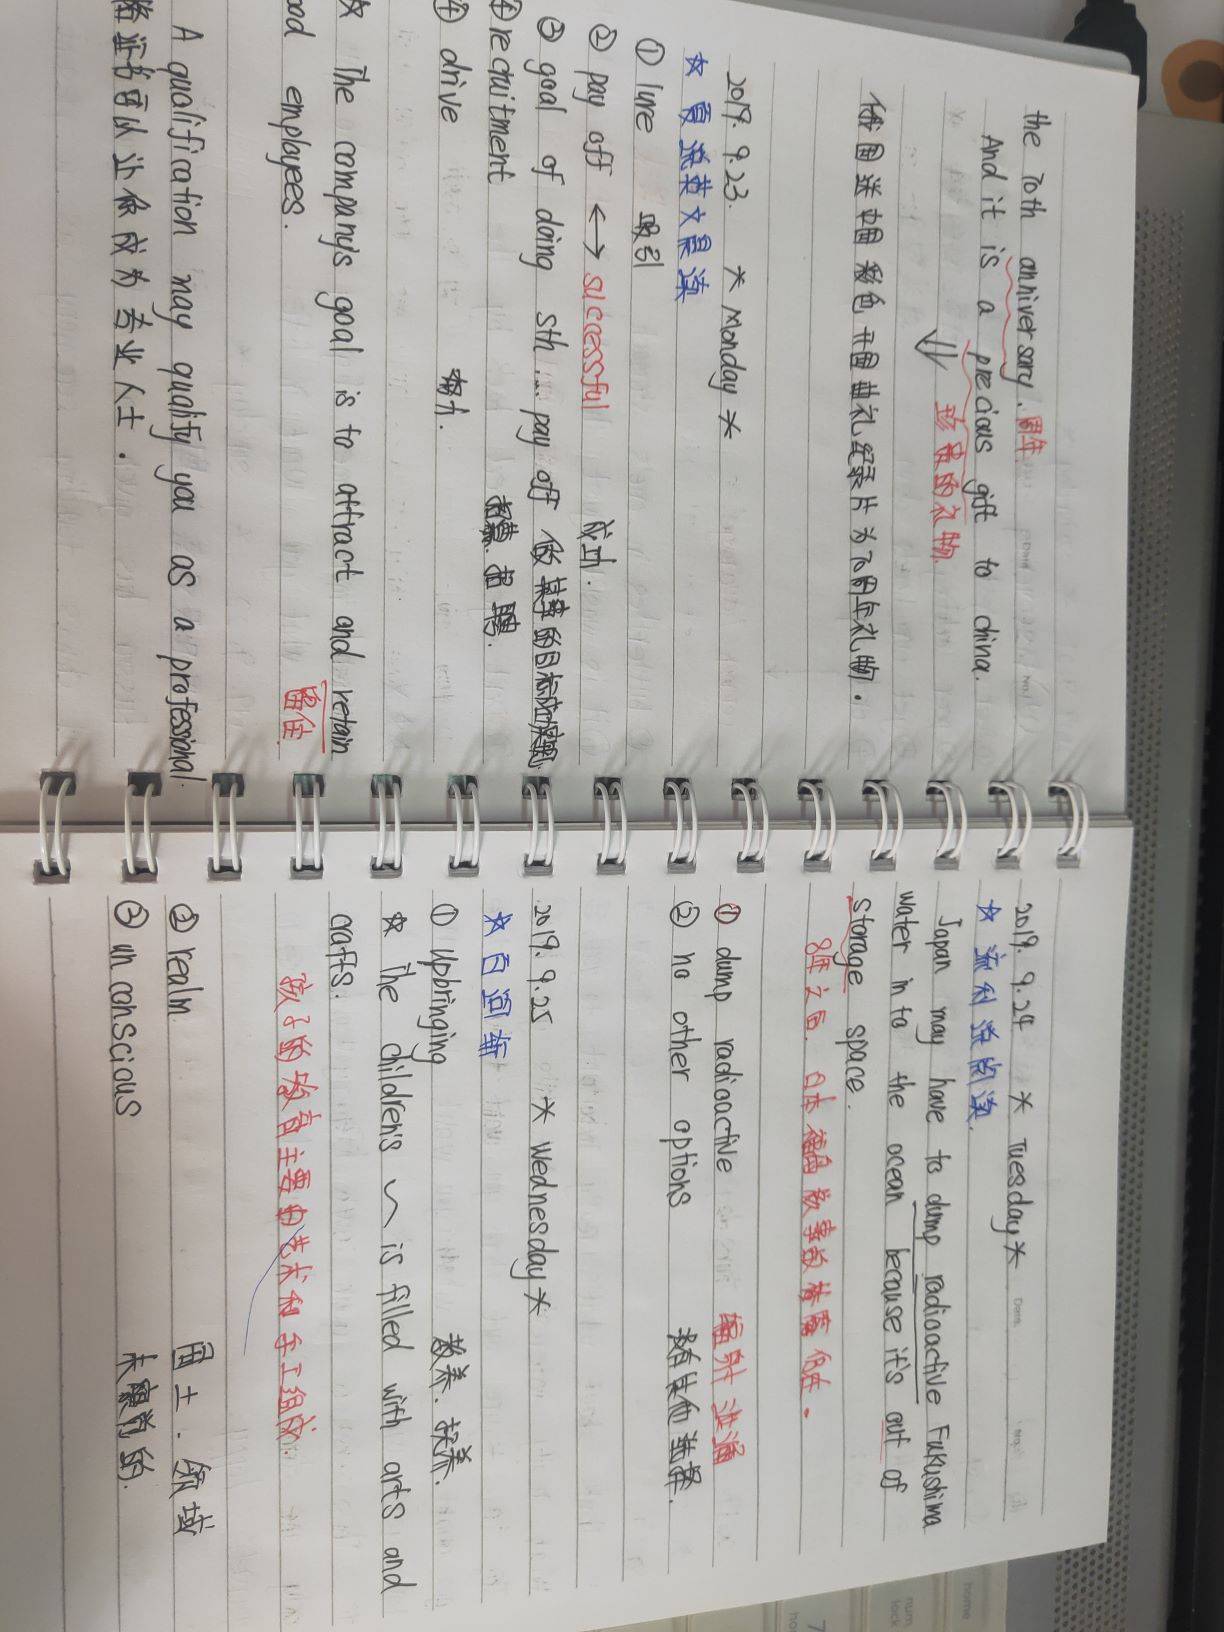 the 70th anniversary. 周年
And it is a precious gift to china.
珍贵的礼物
俄国送中国彩色开国典礼纪录片为70周年礼物.
2019. 9.23. * Monday *
☆ 夏说英文晨读
① lure 吸引
② pay off ↔ successful 成功.
③ goal of doing sth ... pay off 做某事的目标
④ recruitment 招募. 招聘.
④ drive 努力.
☆ The company's goal is to attract and retain
留住
employees.
A qualification may qualify you as a professional.
格证书可以让你成为专业人士.
2019. 9.24 * Tuesday *
☆ 流利说阅读.
Japan may have to dump radioactive Fukushima
water in to the ocean because it's out of
storage space.
8年之后. 日本福岛
① dump radioactive 辐射
② no other options 没有其他选择.
2019. 9.25 * Wednesday *
☆ 百词斩
① upbringing 教养. 抚养.
☆ The children's ~ is filled with arts and
crafts.
孩子的教育主要由艺术和手工组成.
② realm 国土. 领域
③ un conscious 未察觉的.
home
num
lock
7